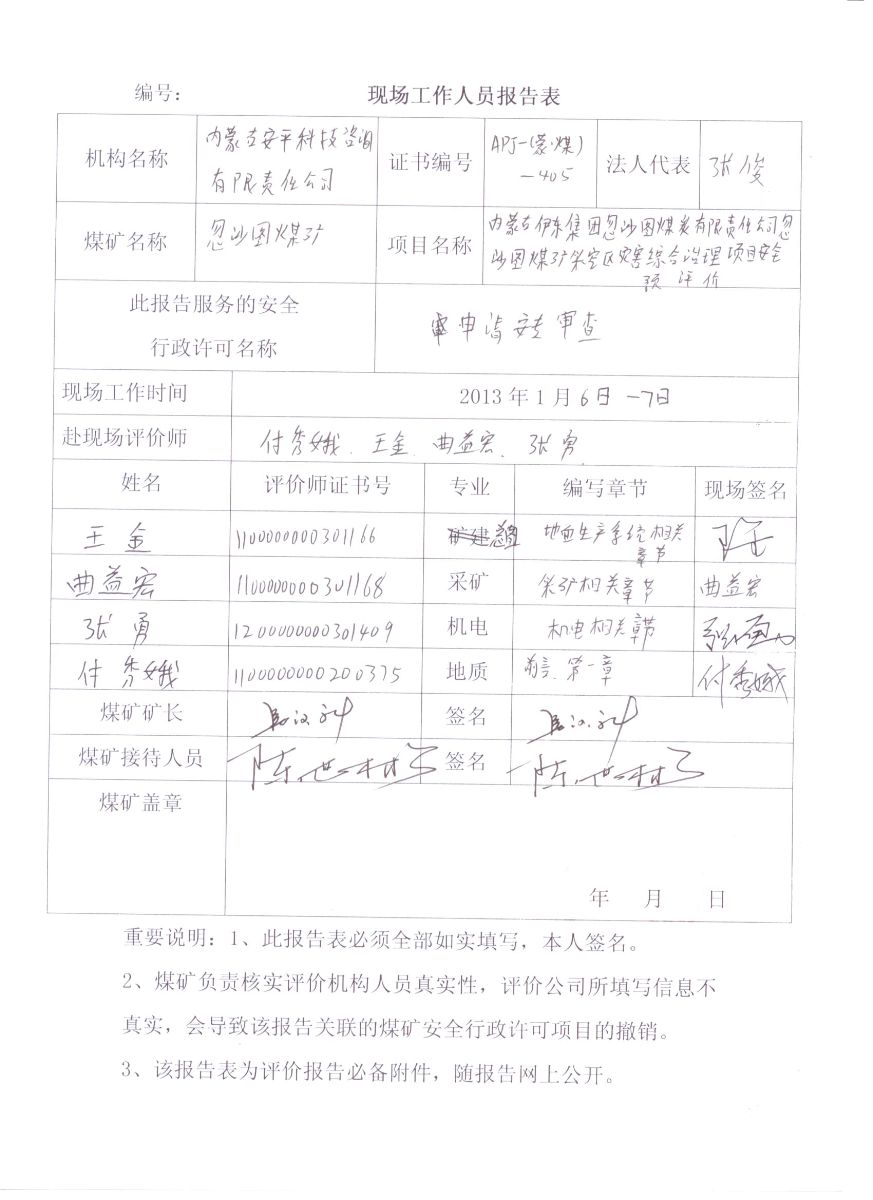 编号： 现场工作人员报告表
机构名称 内蒙古安平科技咨询有限责任公司 证书编号 APJ-(蒙·煤)-405 法人代表 张俊
煤矿名称 忽沙图煤矿 项目名称 内蒙古伊东集团忽沙图煤炭有限责任公司忽沙图煤矿采空区灾害综合治理项目安全预评价
此报告服务的安全
行政许可名称 申请安专审查
现场工作时间 2013年1月6日-7日
赴现场评价师 付秀娥、王金、曲益宏、张勇
姓名 评价师证书号 专业 编写章节 现场签名
王金 1100000000301166 矿建 地面生产系统相关章节 王金
曲益宏 1100000000301168 采矿 采矿相关章节 曲益宏
张勇 1200000000301409 机电 机电相关章节 张勇
付秀娥 1100000000200375 地质 前言、第一章 付秀娥
煤矿矿长 签名
煤矿接待人员 签名
煤矿盖章
年 月 日
重要说明：1、此报告表必须全部如实填写，本人签名。
2、煤矿负责核实评价机构人员真实性，评价公司所填写信息不
真实，会导致该报告关联的煤矿安全行政许可项目的撤销。
3、该报告表为评价报告必备附件，随报告网上公开。